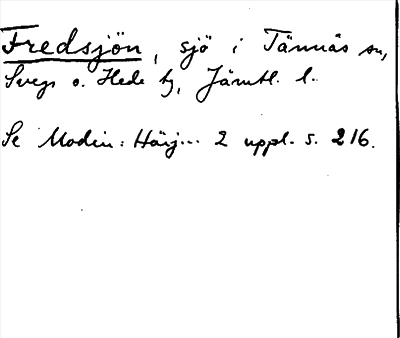 Fredsjön, sjö i Tännäs sn,
Svegs o. Hede tg, Jämtl. l.
Se Modin: Härj... 2 uppl. s. 216.